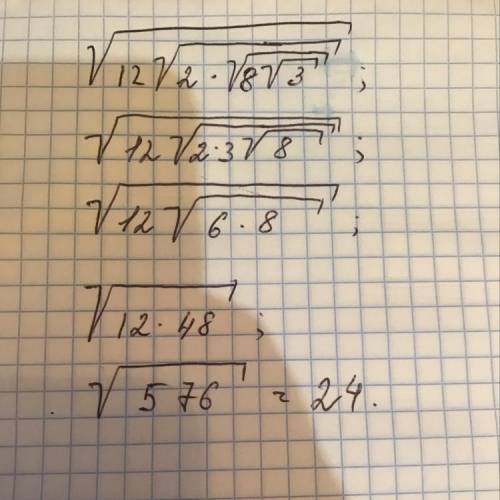 √(12√(2·√(8√(3)))) ;
√(12√(2·3√(8))) ;
√(12√(6·8)) ;
√(12·48) ;
. √(576) = 24.